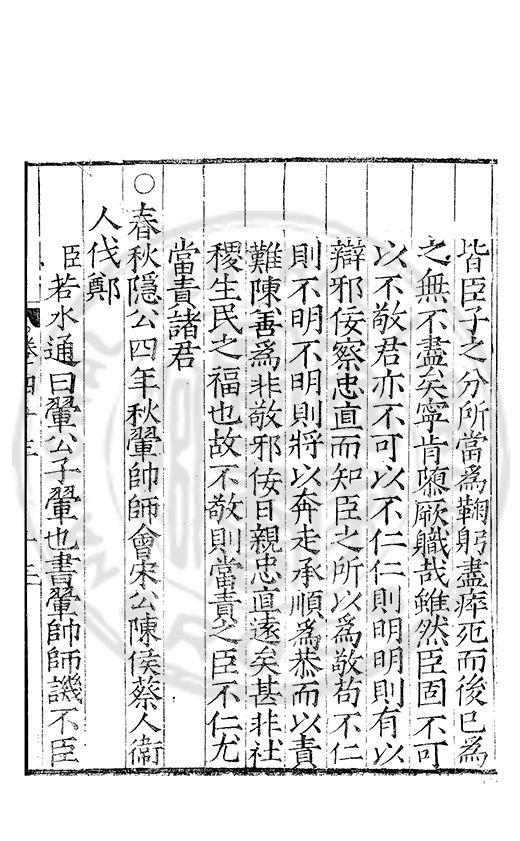 皆臣子之分所當爲鞠躬盡瘁死而後已爲
之無不盡矣寧肯隳厥職哉雖然臣固不可
以不敬君亦不可以不仁仁則明明則有以
辯邪佞察忠直而知臣之所以爲敬苟不仁
則不明不明則將以奔走承順爲恭而以責
難陳善爲非敬邪佞日親忠直遠矣甚非社
稷生民之福也故不敬則當責之臣不仁尤
當責諸君
○春秋隱公四年秋翬帥師會宋公陳侯蔡人衞
人伐鄭
臣若水通曰翬公子翬也書翬帥師譏不臣